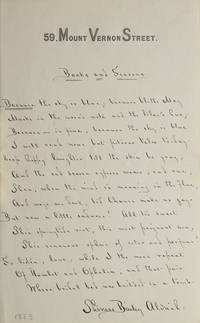 59. MOUNT VERNON STREET.
Books and Seasons
Because the sky is blue, because blithe May
Masks in the wren's note and the lilac's hue,
Because in fine, because the sky is blue
I will read none but piteous tales today.
Keep happy laughter till the sky be gray,
And the sad season cypress wears, and rue;
Then, when the wind is moaning in the flue,
And ways are dark, bid Chaucer make us gay.
But now a little sadness! All too sweet
This springtide riot, this most poignant air,
This sensuous sphere of color and perfume!
So listen, love, while I the woes repeat
Of Hamlet and Ophelia, and that pair
Whose bridal bed was builded in a tomb.
Thomas Bailey Aldrich.